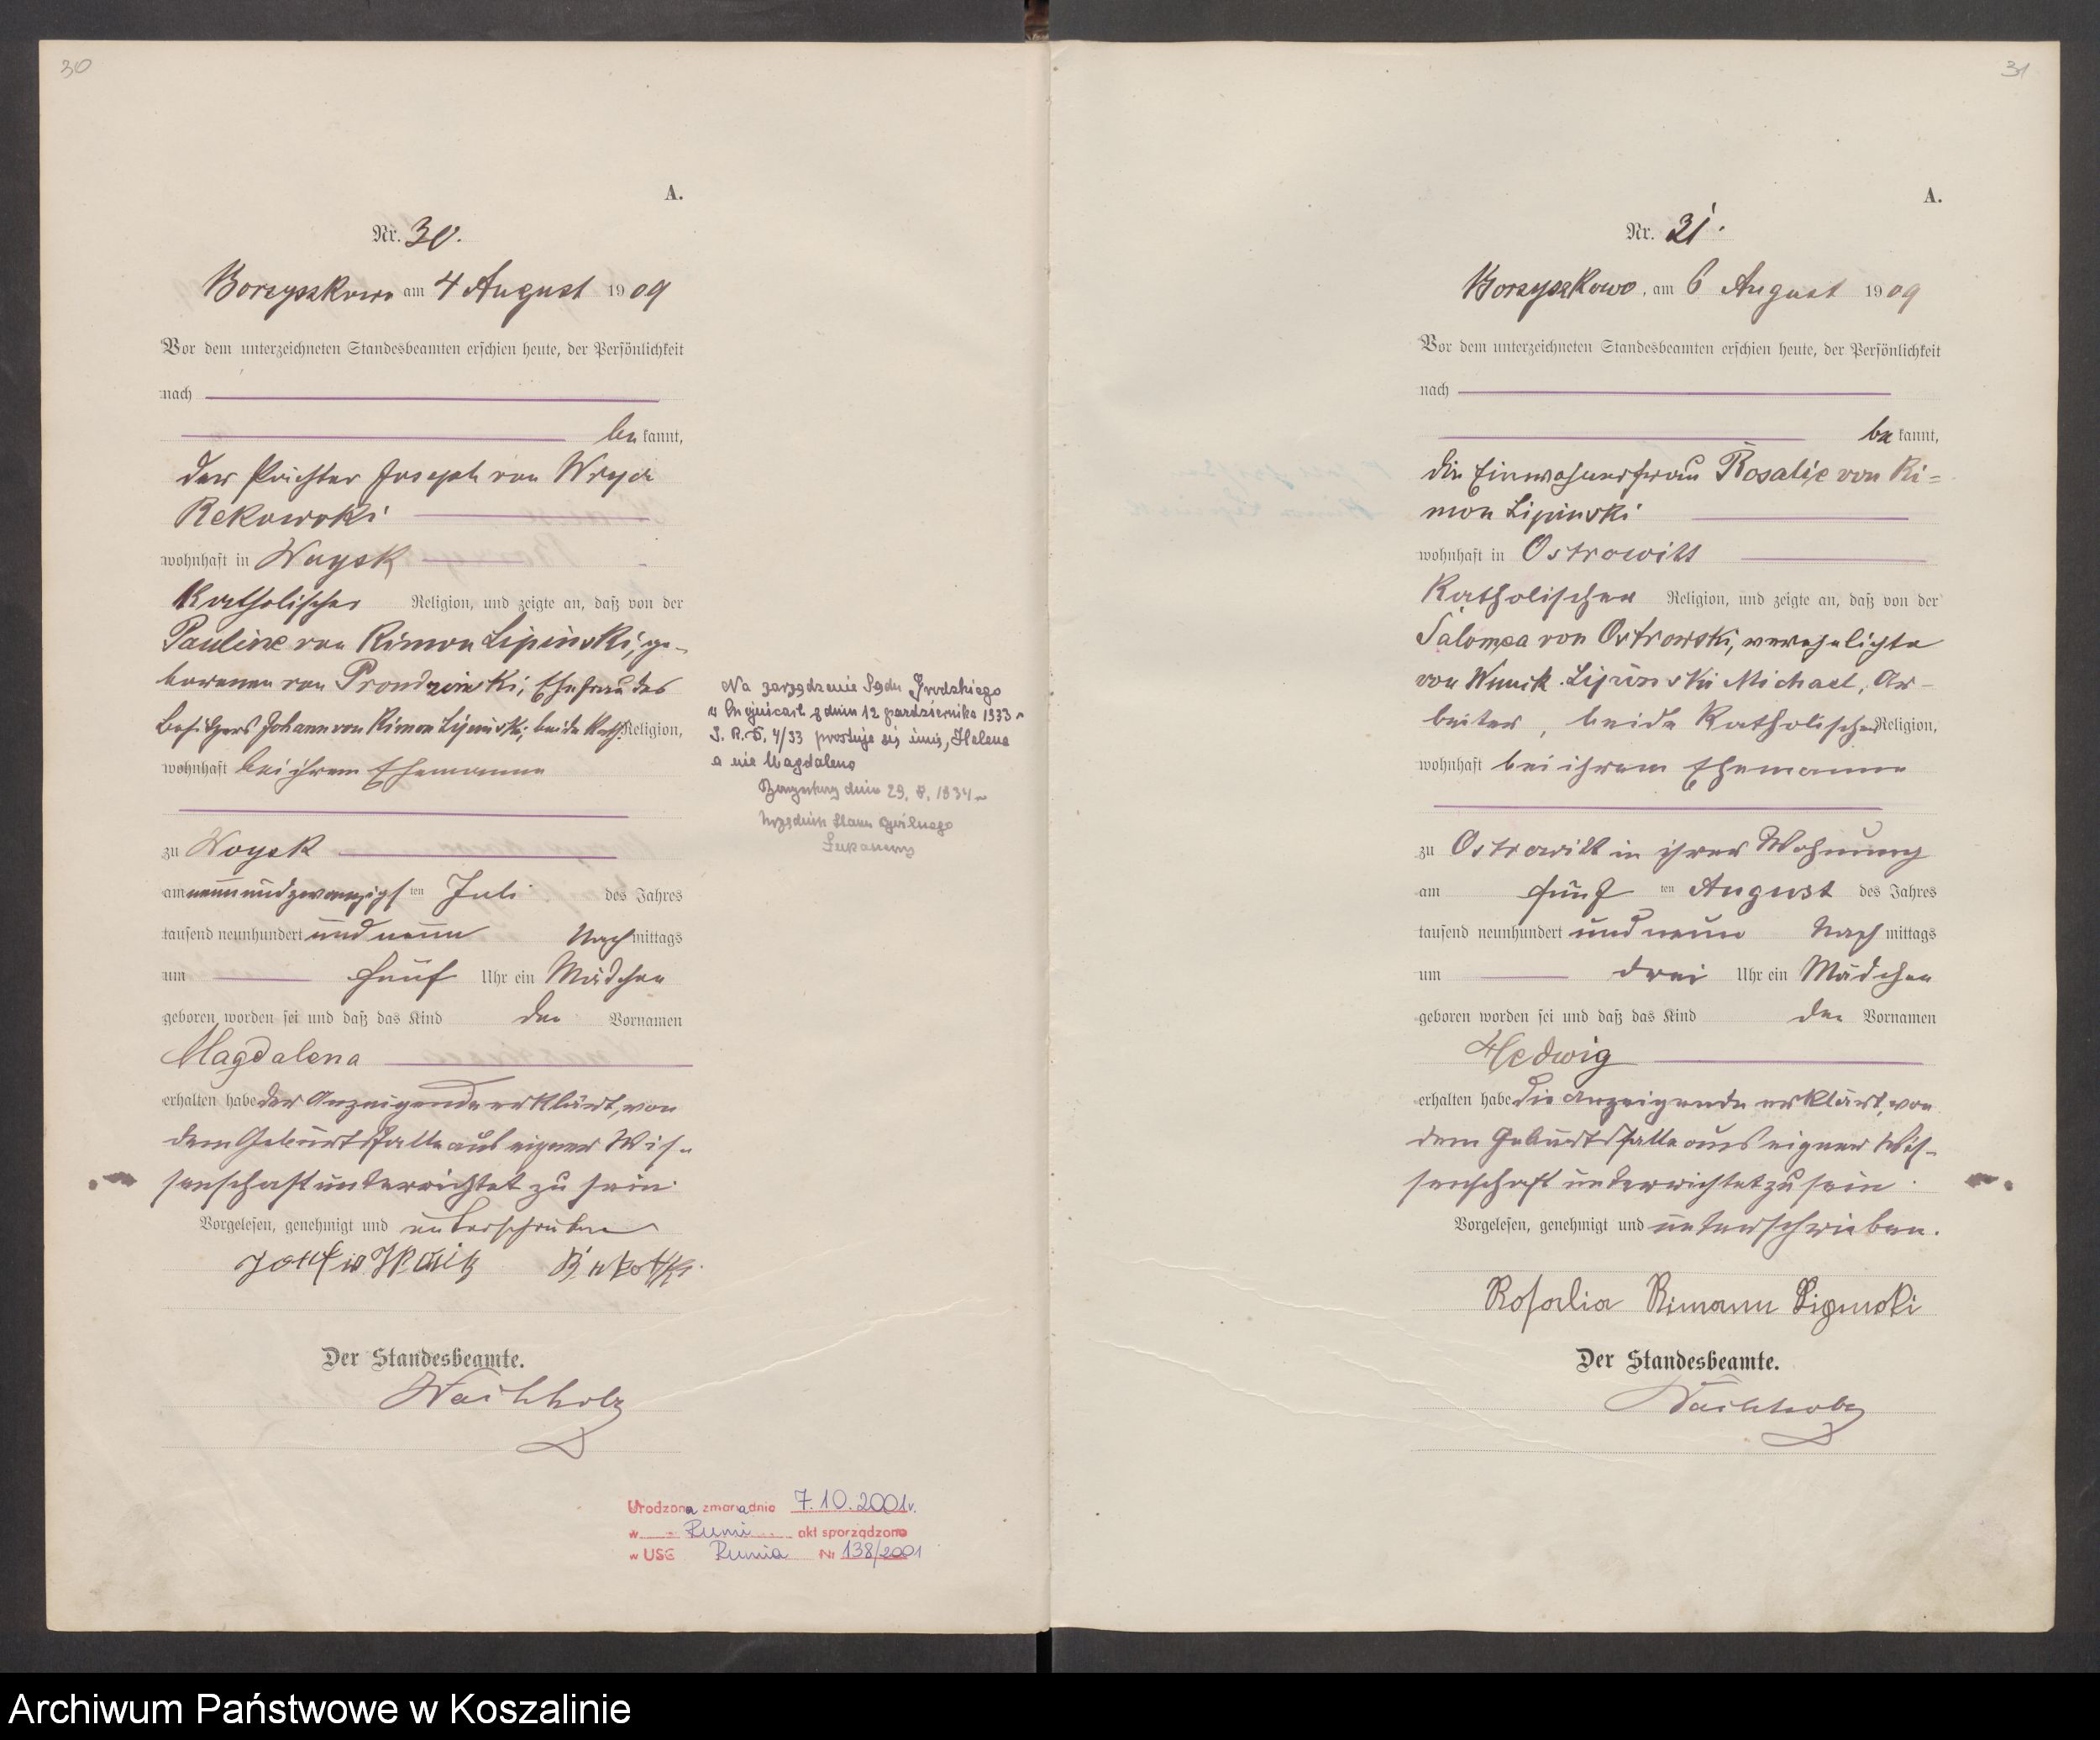 30
A.
Nr. 30.
Borzyszkowo am 4 August 1909
Vor dem unterzeichneten Standesbeamten erschien heute, der Persönlichkeit
nach
be kannt,
der Pächter Joseph von Wrycz
Rekowski
wohnhaft in Woysk
katholischer Religion, und zeigte an, daß von der
Pauline von Kimon Lipinski, ge-
borenen von Prondzinski, Ehefrau des
Besitzers Johann von Kimon Lipinski, beide kath. Religion,
wohnhaft bei ihrem Ehemanne
zu Woysk
am neunundzwanzigs ten Juli des Jahres
tausend neunhundert und neun Nach mittags
um fünf Uhr ein Mädchen
geboren worden sei und daß das Kind den Vornamen
Magdalena
erhalten habe der Anzeigende erklärt, von
dem Geburtsfalle aus eigner Wis-
senschaft unterrichtet zu sein.
Vorgelesen, genehmigt und unterschrieben
Der Standesbeamte.
Wachholz
Na zarządzenie Sądu Grodzkiego
w dnia 12 października 1933 r
4/33 prostuje się imię, Helena
a nie Magdalena
dnia 29. 8. 1934 r
Urzędnik Stanu Cywilnego
Urodzona zmarła dnia 7.10.2001 r.
w Rumi akt sporządzono
w USC Rumia Nr 138/2001
31
A.
Nr. 31.
Borzyszkowo, am 6 August 1909
Vor dem unterzeichneten Standesbeamten erschien heute, der Persönlichkeit
nach
be kannt,
die Einwohnerfrau Rosalie von Ki=
mon Lipinski
wohnhaft in Ostrowitt
katholischer Religion, und zeigte an, daß von der
Salomea von Ostrowski, verehelichte
von Wnuck Lipinski Michael, Ar-
beiter, beide katholischer Religion,
wohnhaft bei ihrem Ehemanne
zu Ostrowitt in ihrer Wohnung
am fünf ten August des Jahres
tausend neunhundert und neun Nach mittags
um drei Uhr ein Mädchen
geboren worden sei und daß das Kind den Vornamen
Hedwig
erhalten habe die Anzeigende erklärt, von
dem Geburtsfalle aus eigner Wis-
senschaft unterrichtet zu sein.
Vorgelesen, genehmigt und unterschrieben.
Rosalia Kimann Lipinski
Der Standesbeamte.
Wachholz
Archiwum Państwowe w Koszalinie